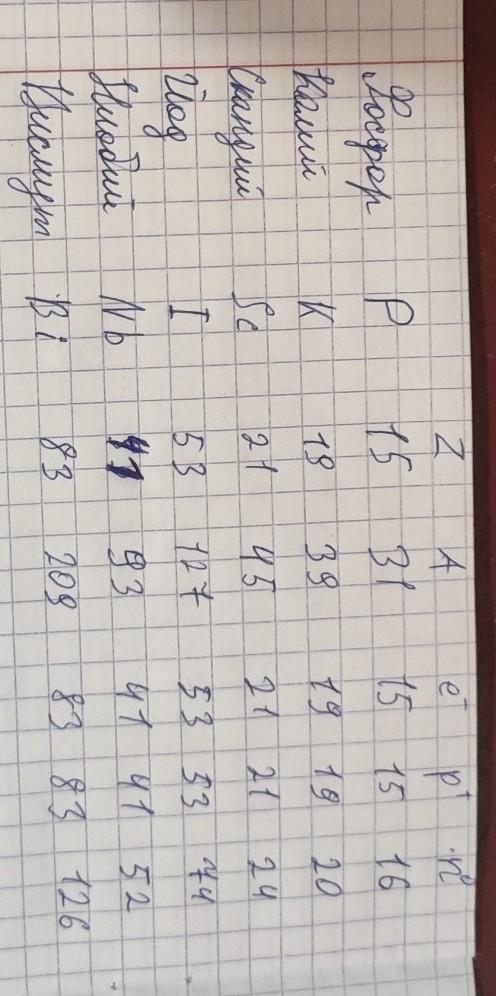 Z A e⁻ p⁺ n⁰
Фосфор P 15 31 15 15 16
Калий K 19 39 19 19 20
Скандий Sc 21 45 21 21 24
Йод I 53 127 53 53 74
Ниобий Nb 41 93 41 41 52
Висмут Bi 83 209 83 83 126